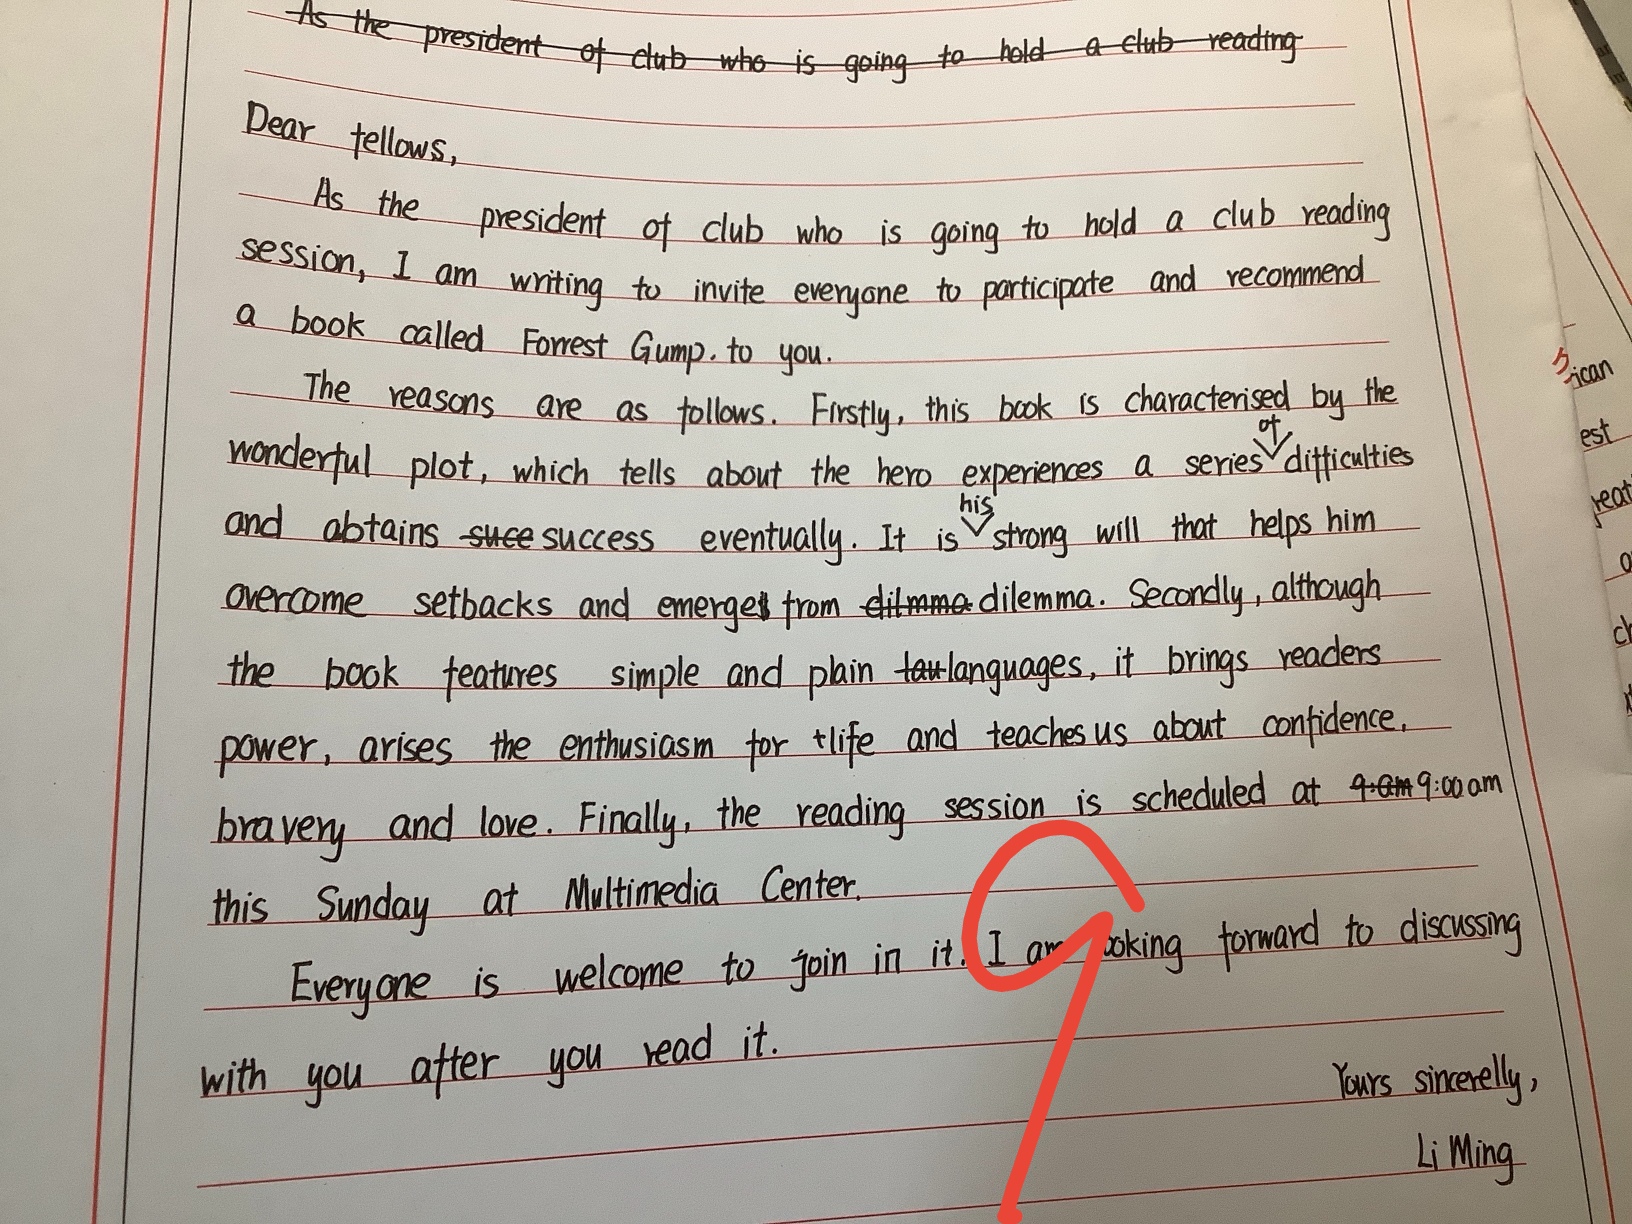 As the president of club who is going to hold a club reading
Dear fellows,
As the president of club who is going to hold a club reading
session, I am writing to invite everyone to participate and recommend
a book called Forrest Gump. to you.
The reasons are as follows. Firstly, this book is characterised by the
wonderful plot, which tells about the hero experiences a series of difficulties
and abtains suce success eventually. It is his strong will that helps him
overcome setbacks and emerges from dilmma dilemma. Secondly, although
the book features simple and plain lau languages, it brings readers
power, arises the enthusiasm for life and teaches us about confidence,
bravery and love. Finally, the reading session is scheduled at 9:am 9:00 am
this Sunday at Multimedia Center.
Everyone is welcome to join in it. I am looking forward to discussing
with you after you read it.
Yours sincerelly,
Li Ming
9
ican
est